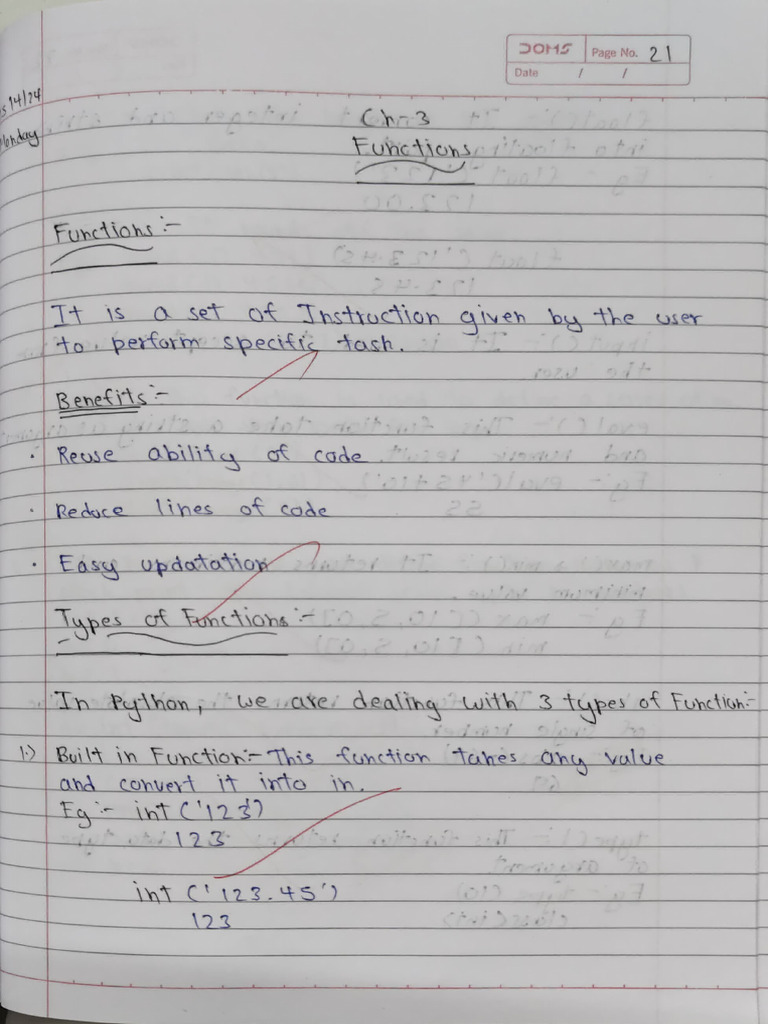 DOMS
Page No. 21
Date / /
14/24
Ch-3
Functions
Functions :-
It is a set of Instruction given by the user
to perform specific task.
Benefits :-
· Reuse ability of code
· Reduce lines of code
· Easy updatation
Types of Functions :-
In Python, we are dealing with 3 types of Function:-
1.) Built in Function:- This function takes any value
and convert it into in.
Eg :- int ('123')
123
int ('123.45')
123